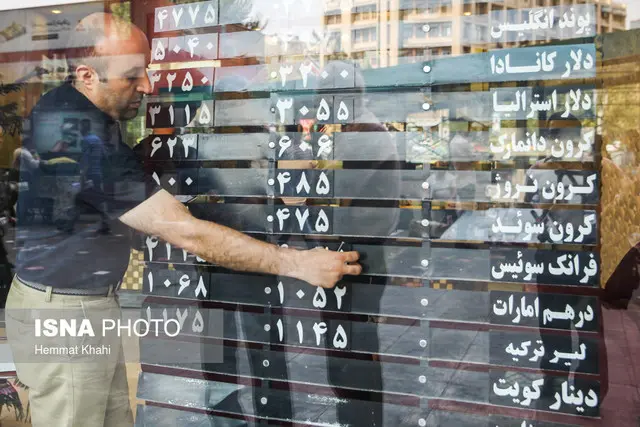 ۴۷۷۵
پوند انگلیس ۵۰۴۰
دلار کانادا ۳۲۰۰ ۳۲۵۰
دلار استرالیا ۳۰۵۵ ۳۱۱۵
کرون دانمارک ۶۰۶ ۶۲۳
کرون نروژ ۴۸۵
کرون سوئد ۴۷۵
فرانک سوئیس
درهم امارات ۱۰۵۲ ۱۰۶۸
لیر ترکیه ۱۱۴۵ ۱۱۷۵
دینار کویت
ISNA PHOTO
Hemmat Khahi